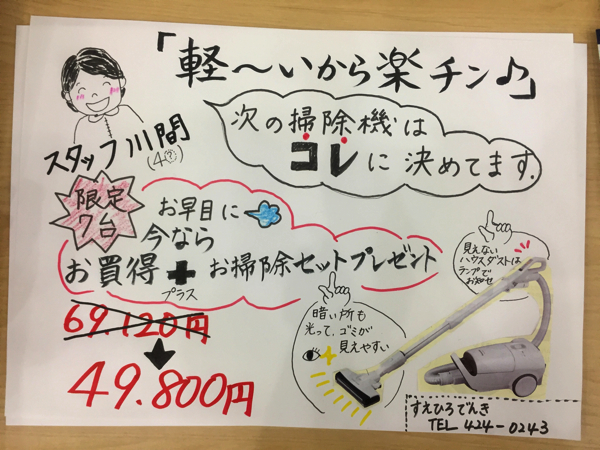 「軽～いから楽チン♪」
スタッフ川間
次の掃除機は
コレに決めてます。
限定
7台
お早目に
今なら
お買得＋お掃除セットプレゼント
プラス
69.120円
49.800円
見えない
ハウスダストは
ランプで
お知らせ
暗い所も
光って、ゴミが
見えやすい
すえひろでんき
TEL 424-0243